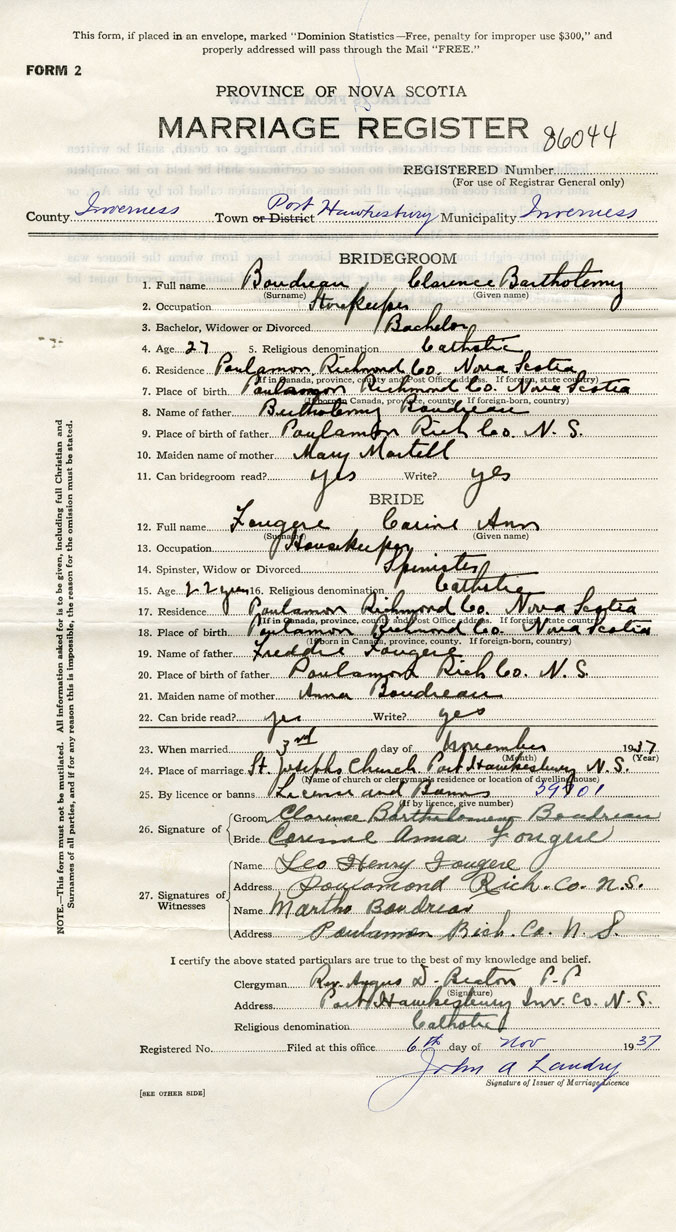 This form, if placed in an envelope, marked "Dominion Statistics—Free, penalty for improper use $300," and
properly addressed will pass through the Mail "FREE."
FORM 2
PROVINCE OF NOVA SCOTIA
MARRIAGE REGISTER 86044
REGISTERED Number
(For use of Registrar General only)
County Inverness Town or District Port Hawkesbury Municipality Inverness
BRIDEGROOM
1. Full name Boudreau Clarence Bartholemy
(Surname) (Given name)
2. Occupation Storekeeper
3. Bachelor, Widower or Divorced Bachelor
4. Age 27 5. Religious denomination Catholic
6. Residence Poulamon, Richmond Co. Nova Scotia
(If in Canada, province, county and Post Office address. If foreign, state country)
7. Place of birth Poulamon Richmond Co. Nova Scotia
(If born in Canada, province, county. If foreign-born, country)
8. Name of father Bertholemy Boudreau
9. Place of birth of father Poulamon Rich Co. N. S.
10. Maiden name of mother Mary Martell
11. Can bridegroom read? yes Write? yes
BRIDE
12. Full name Fougere Corine Ann
(Surname) (Given name)
13. Occupation Housekeeper
14. Spinster, Widow or Divorced Spinster
15. Age 22 years 16. Religious denomination Catholic
17. Residence Poulamon Richmond Co. Nova Scotia
(If in Canada, province, county and Post Office address. If foreign, state country)
18. Place of birth Poulamon Richmond Co. Nova Scotia
(If born in Canada, province, county. If foreign-born, country)
19. Name of father Freddie Fougere
20. Place of birth of father Poulamon Rich Co. N. S.
21. Maiden name of mother Anna Boudreau
22. Can bride read? yes Write? yes
23. When married 3rd day of November 1937
(Month) (Year)
24. Place of marriage St. Josephs Church Port Hawkesbury N. S.
(Name of church or clergyman's residence or location of dwelling house)
25. By licence or banns License and Banns
(If by licence, give number)
26. Signature of
Groom Clarence Bartholomey Boudreau
Bride Corinne Anna Fougere
27. Signatures of Witnesses
Name Leo Henry Fougere
Address Poulamond Rich. Co. N. S.
Name Martha Boudreau
Address Poulamon Rich. Co. N. S.
I certify the above stated particulars are true to the best of my knowledge and belief.
Clergyman Rev. Angus D. P. P.
(Signature)
Address Port Hawkesbury Inv. Co. N. S.
Religious denomination Catholic
Registered No. Filed at this office 6th day of Nov 1937
John A Landry
Signature of Issuer of Marriage Licence
[SEE OTHER SIDE]
NOTE.—This form must not be mutilated. All information asked for is to be given, including full Christian and
Surnames of all parties, and if for any reason this is impossible, the reason for the omission must be stated.